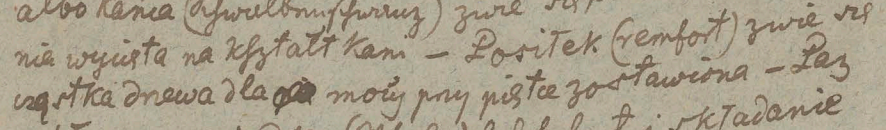 albo kania (Schwalbenschwanz) zwie się
nia wycięta na kształt kani – Posiłek (remfort) zwie się
cząstka drzewa dla mocy przy piętce zostawiona – Paz
i składanie